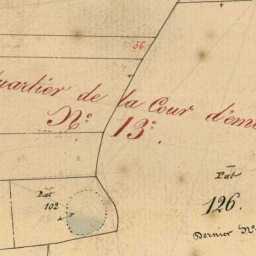 56
Quartier de la Cour d'em
N.º 13.
Pat
102
Pat
126.
Dernier Nº